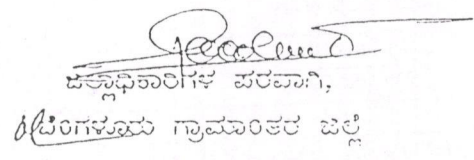 ಜಿಲ್ಲಾಧಿಕಾರಿಗಳ ಪರವಾಗಿ,
ಬೆಂಗಳೂರು ಗ್ರಾಮಾಂತರ ಜಿಲ್ಲೆ